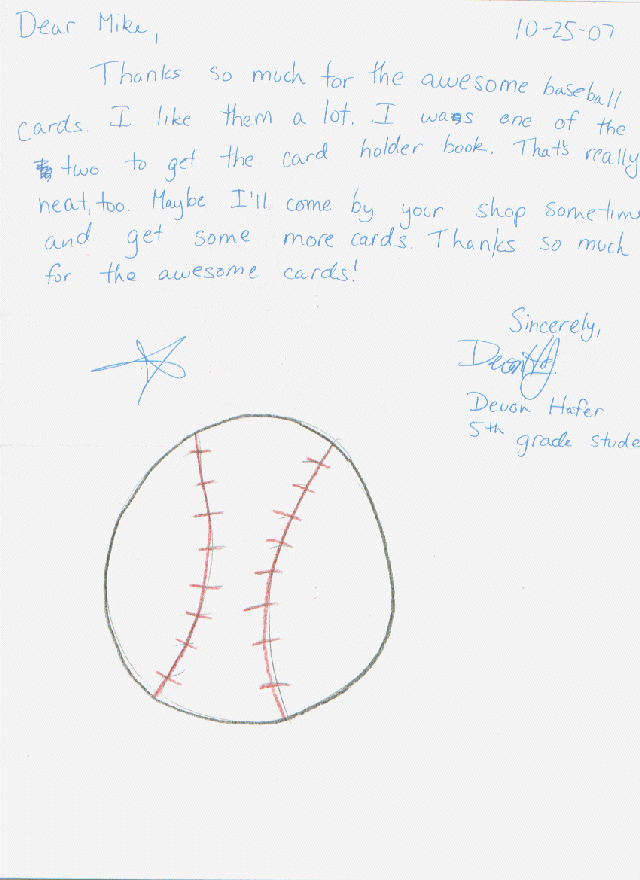 Dear Mike, 10-25-07
Thanks so much for the awesome baseball
cards. I like them a lot. I was one of the
two to get the card holder book. That's really
neat, too. Maybe I'll come by your shop sometime
and get some more cards. Thanks so much
for the awesome cards!
Sincerely,
Devon Hafer
5th grade stude